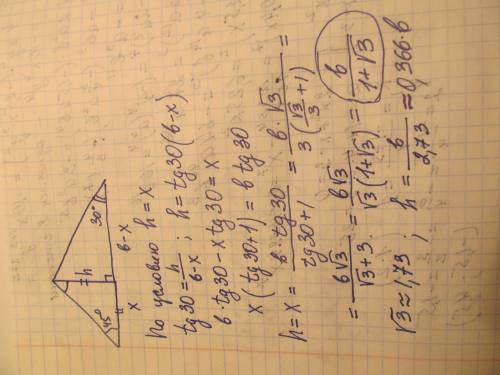 45°
30°
h
x
b-x
По условию h = x
tg30 = h/(b-x) ; h = tg30(b-x)
b tg30 - x tg30 = x
x(tg30+1) = b tg30
h = x = (b · tg30)/(tg30+1) = (b · √3)/(3(√3/3 + 1)) =
= (b√3)/(√3+3) = (b√3)/(√3(1+√3)) = b/(1+√3)
√3 ≈ 1,73 ; h = b/2,73 ≈ 0,366·b